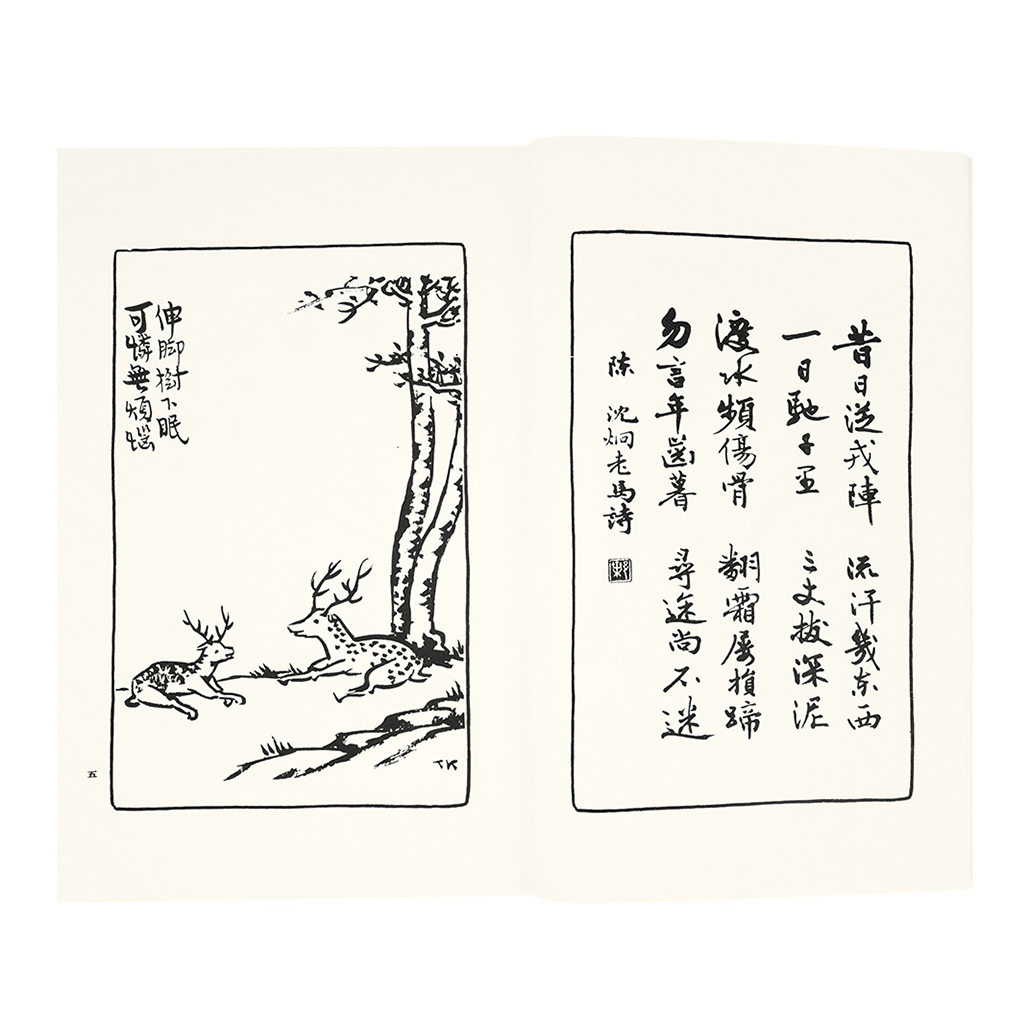 昔日從戎陣 流汗幾東西
一日馳千里 三丈拔深泥
渡水頻傷骨 翻霜屢損蹄
勿言年齒暮 尋途尚不迷
陳 沈炯老馬詩
伸脚樹下眠
可憐無煩惱
TK
五